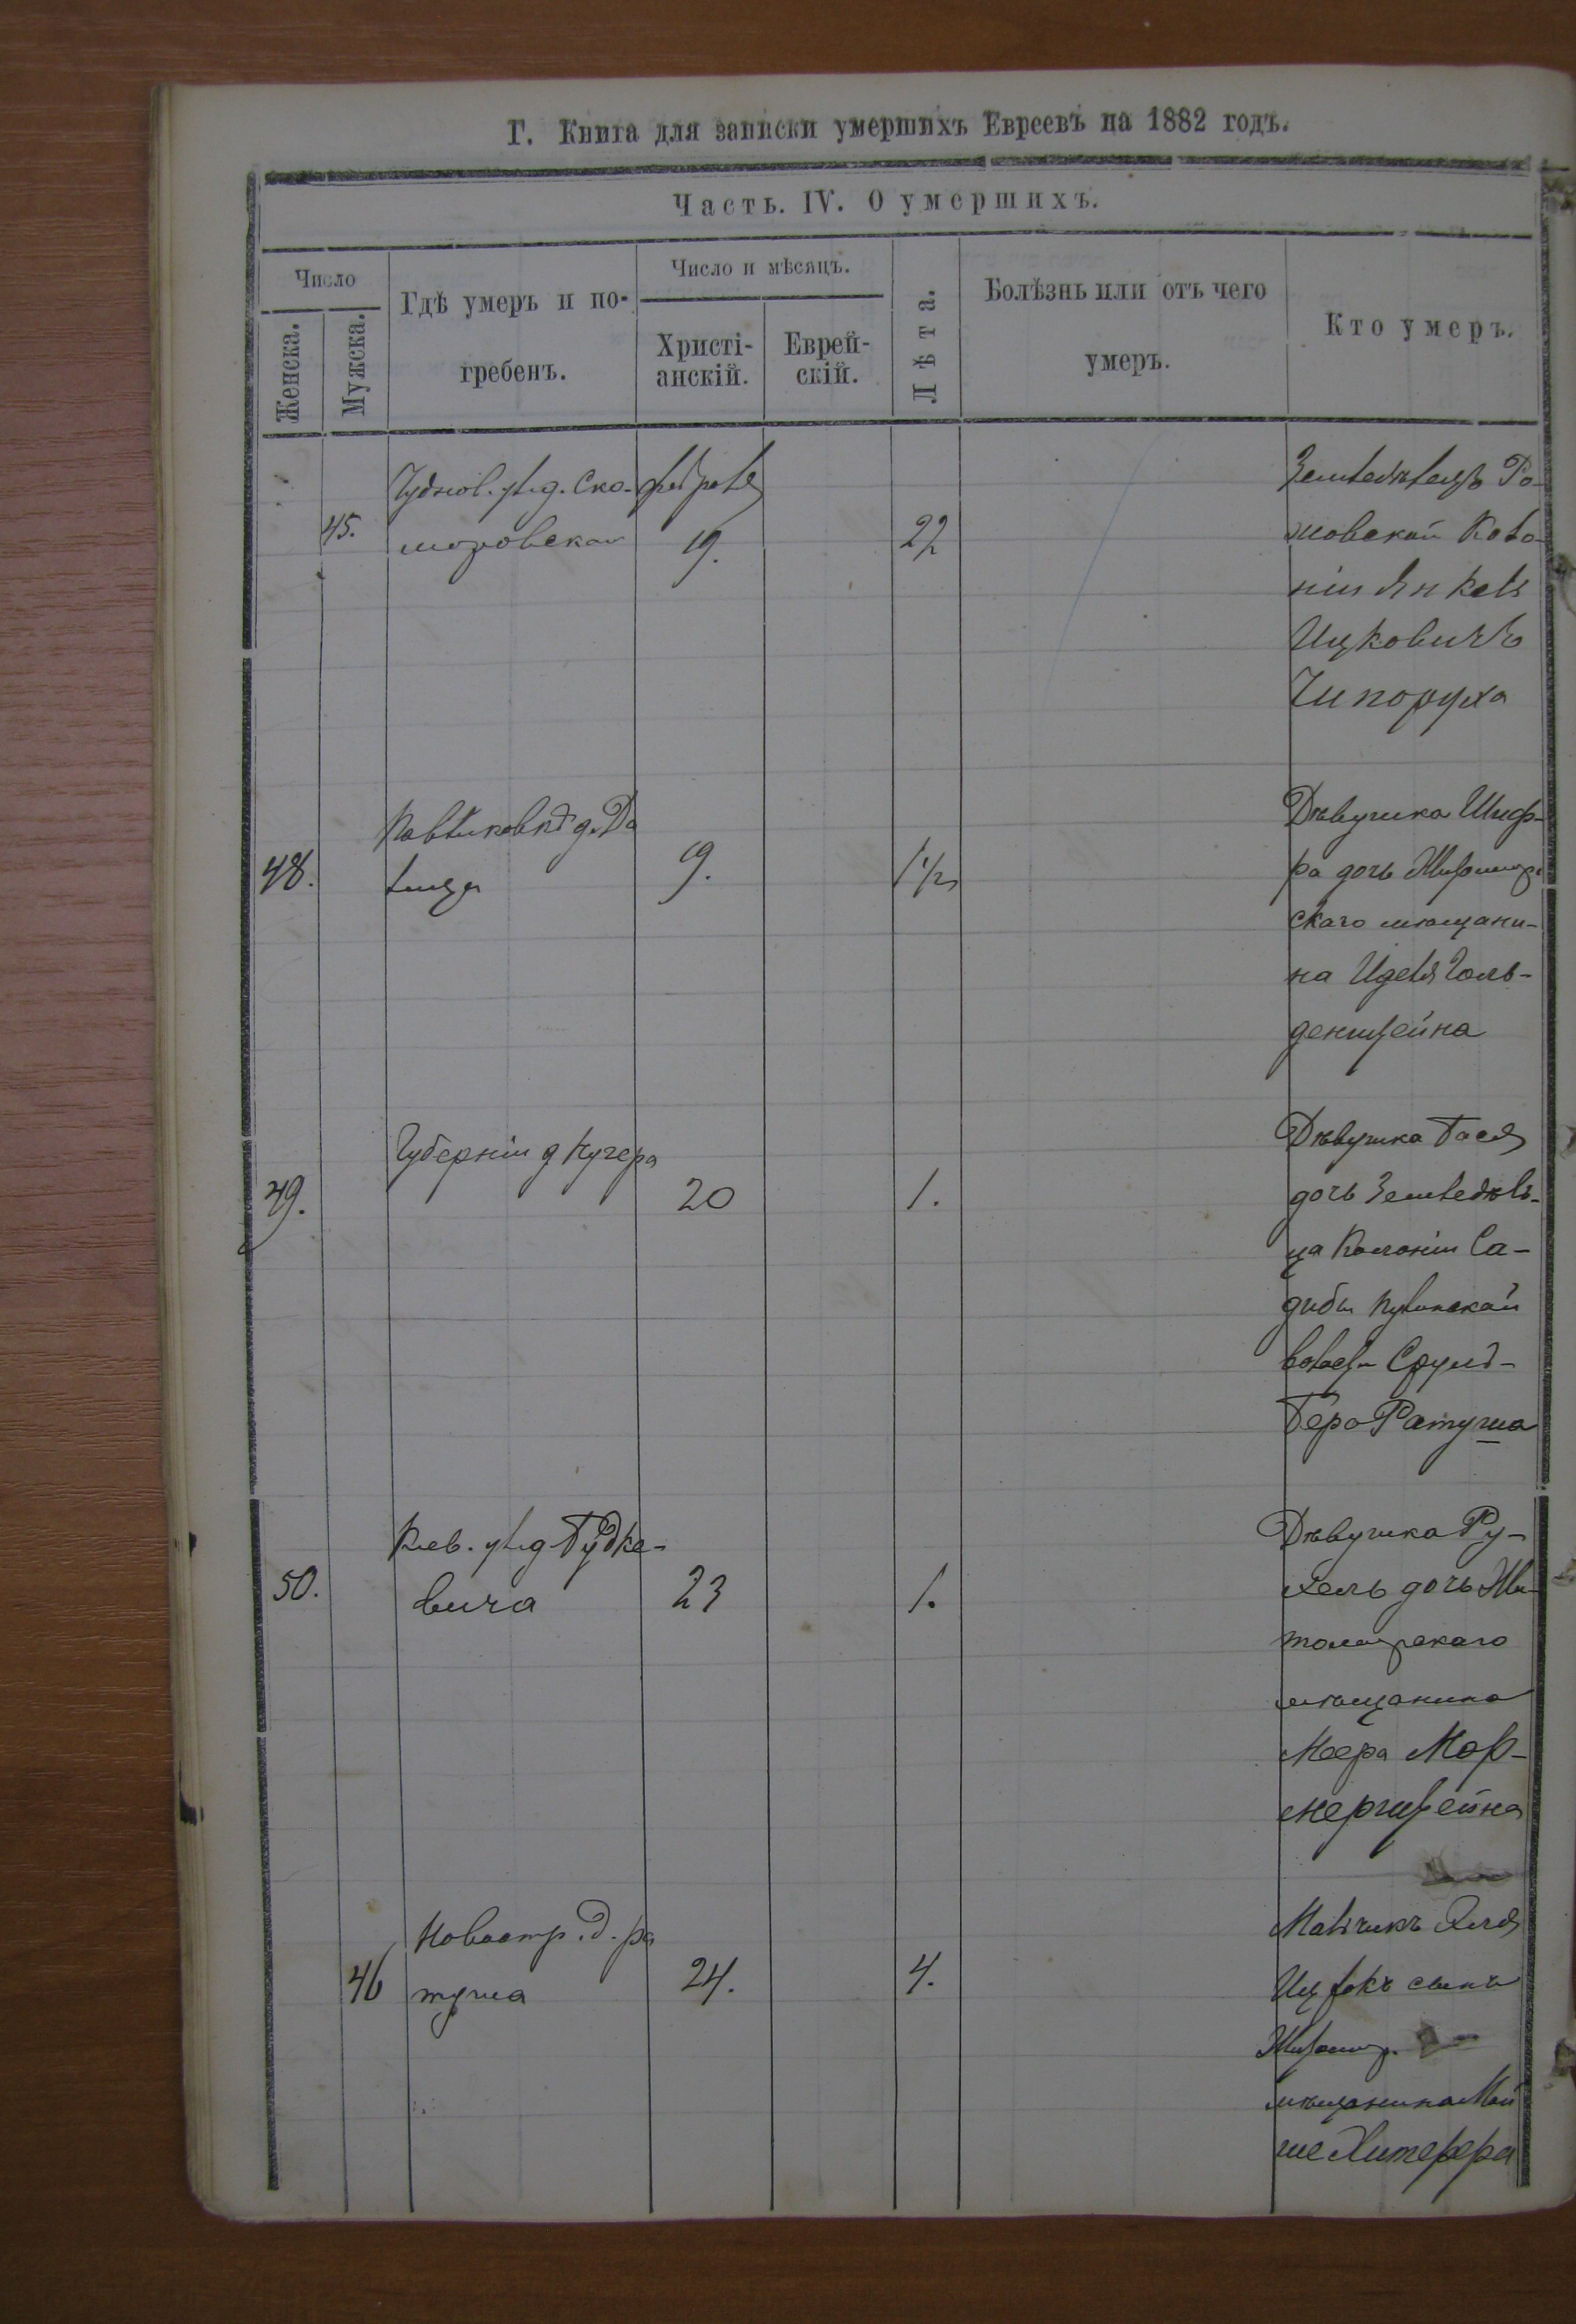 Г. Книга для записки умершихъ Евреевъ на 1882 годъ.
Часть. IV. О умершихъ.
Число
Женска.
Мужска.
Гдѣ умеръ и по-
гребенъ.
Число и мѣсяцъ.
Христі-
анскій.
Еврей-
скій.
Лѣта.
Болѣзнь или отъ чего
умеръ.
Кто умеръ.
45.
Чуднов. ул. д. Ско-
моровской
февраля
19.
22
Земледѣлецъ Ро-
мовской Коло-
ніи Янкель
Ицковичъ
Чипоруха
48.
д. Да
лица
19.
1 1/2
Дѣвушка Шиф-
ра дочь Житомир-
скаго мѣщани-
на Иделя Голь-
денштейна
49.
Губерніи д Кучера
20
1.
Дѣвушка Бася
дочь Земледѣль-
ца Колоніи Са-
дибы
волости Сруль-
Бера Ратуша
50.
Кіев. ул. д Будке-
вича
23
1.
Дѣвушка Ру-
хель дочь Жи-
томирскаго
мѣщанина
Меера Мор-
герштейна
46
Новостр. д. ра
туша
24.
4.
Мальчикъ
Ицхокъ сынъ
Житомир.
мѣщанина Мой
ше Хитерера